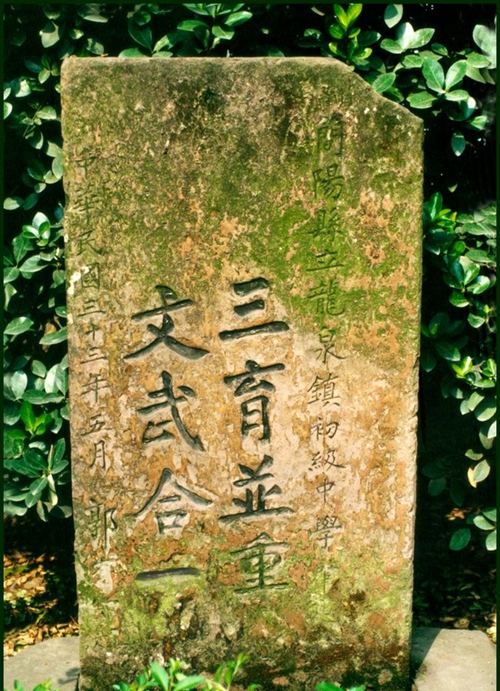 簡陽縣立龍泉鎮初級中學
三育並重
文武合一
中華民國三十二年五月